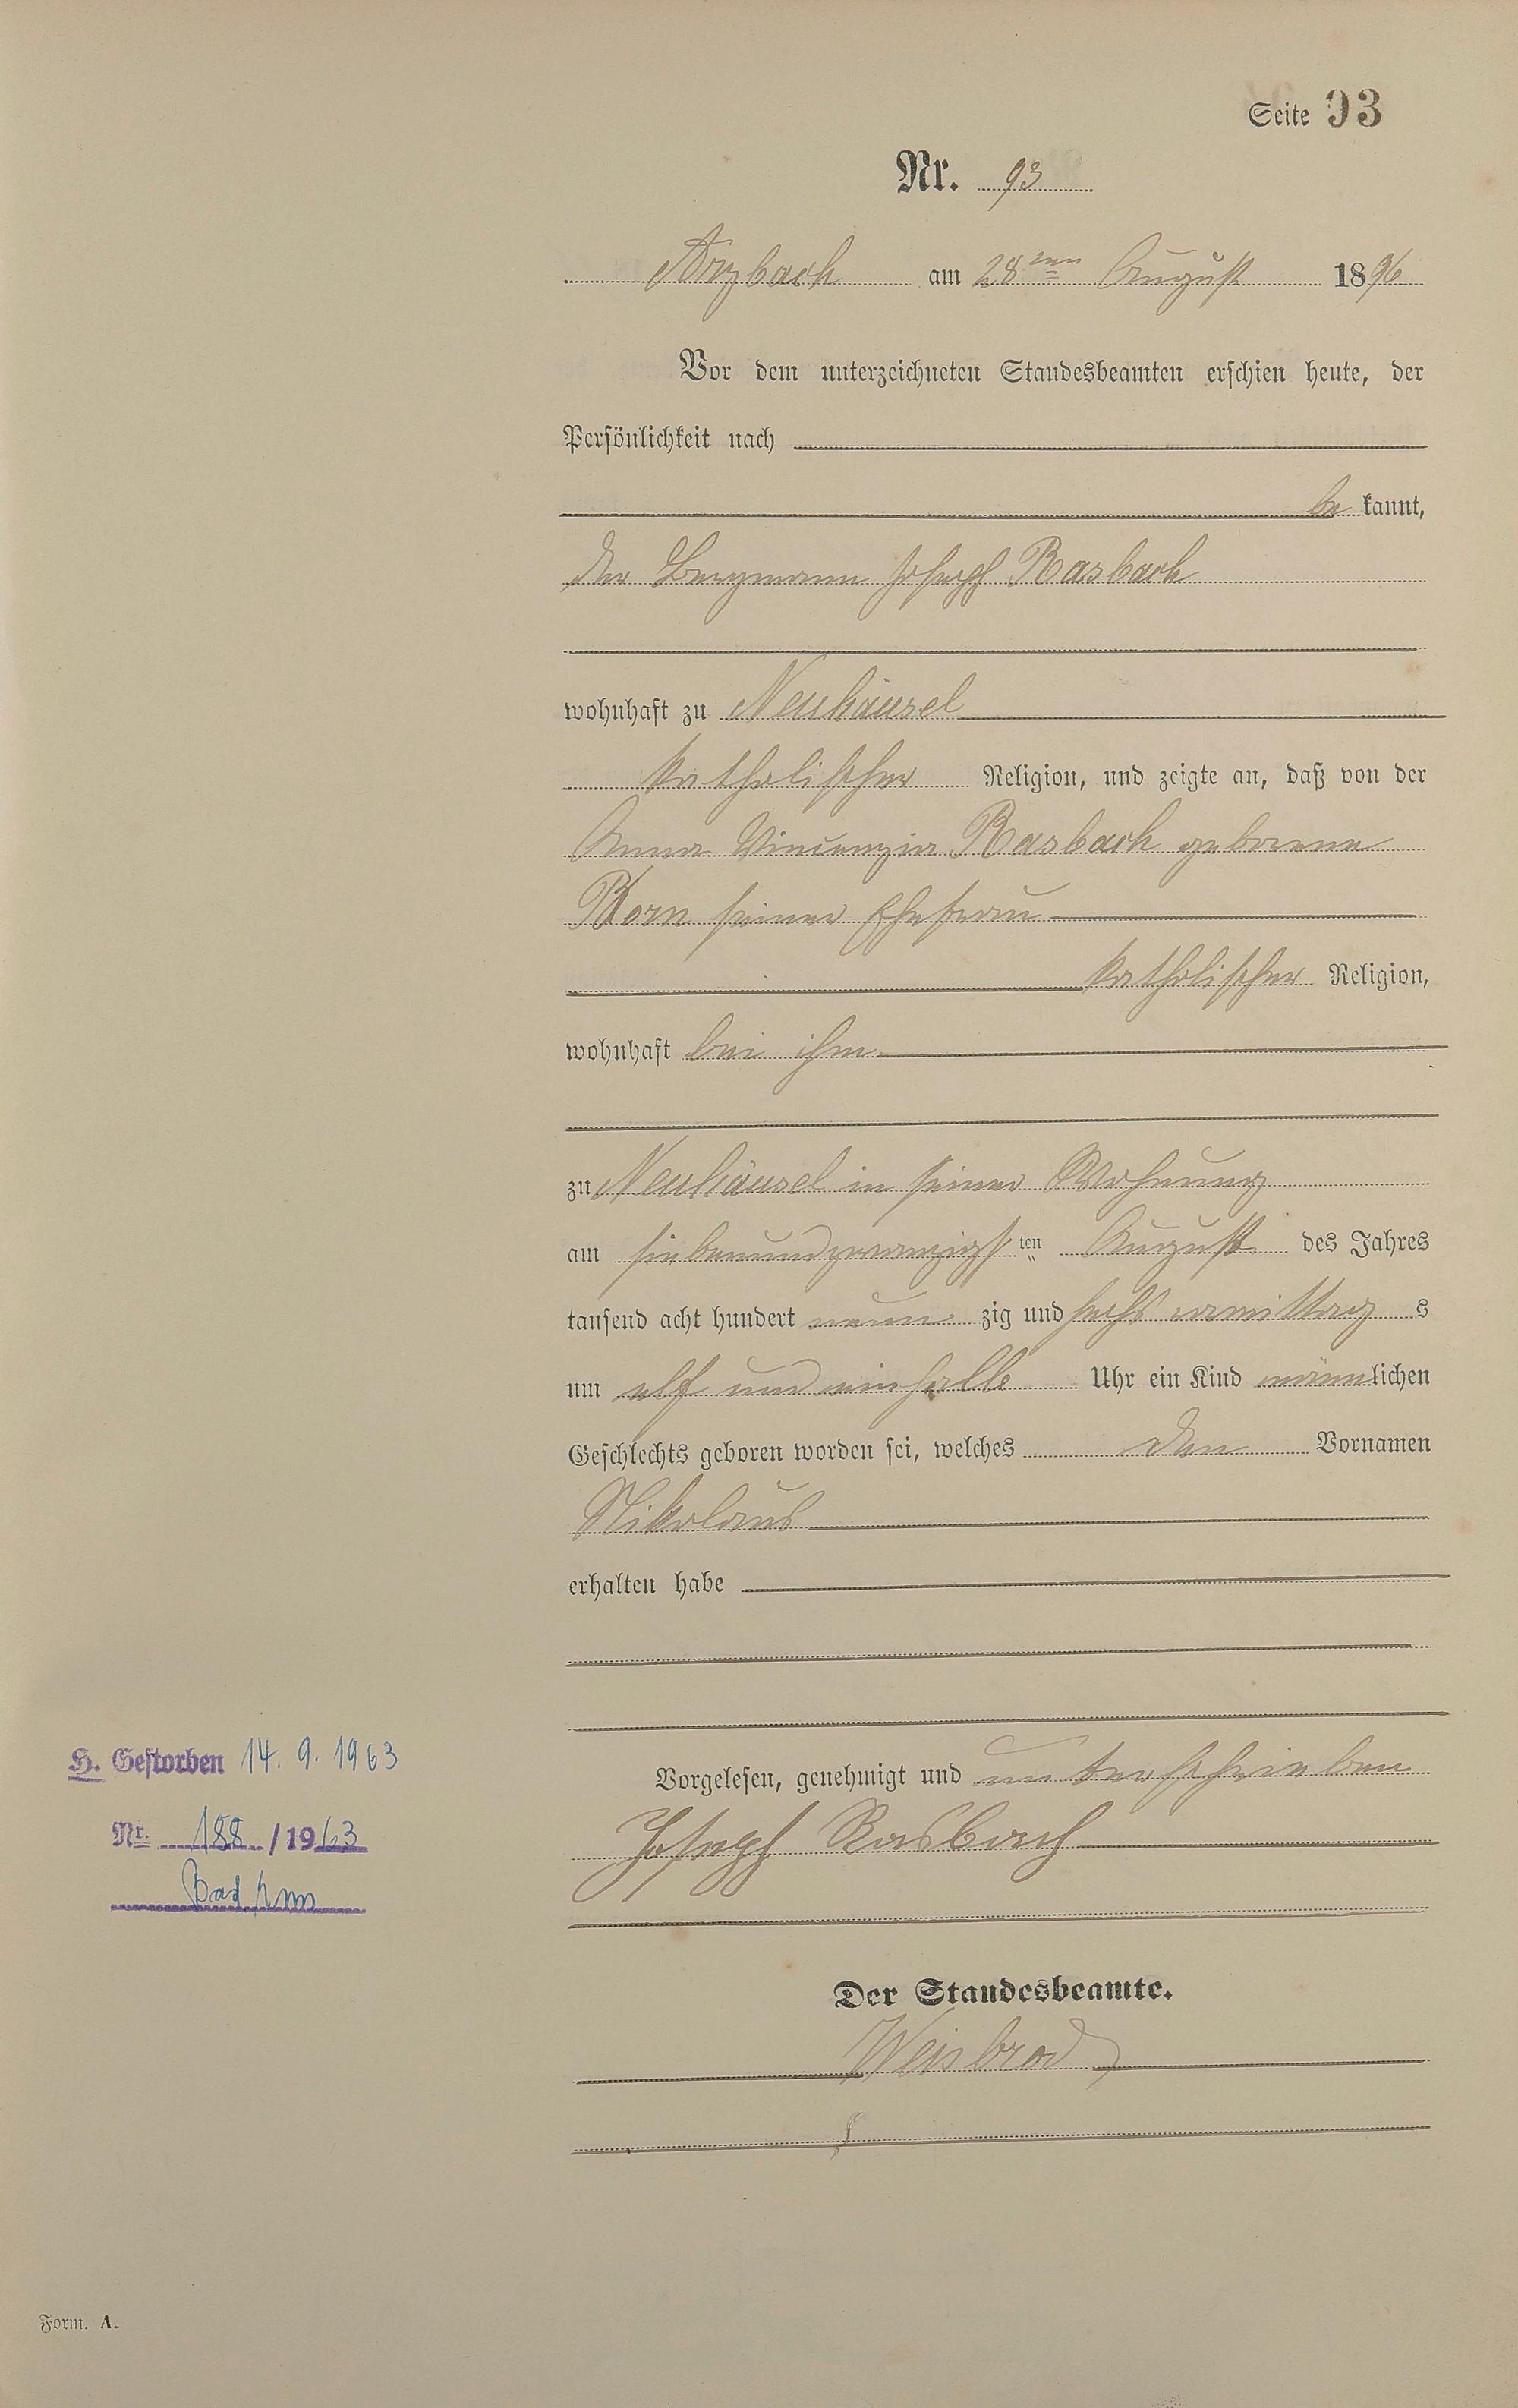 Seite 93
Nr. 93
Arzbach am 28ten August 1896
Vor dem unterzeichneten Standesbeamten erschien heute, der
Persönlichkeit nach
be kannt,
der Bergmann Joseph Rasbach
wohnhaft zu Neuhäusel
katholischer Religion, und zeigte an, daß von der
Anna Vincenzia Rasbach geborene
Korn seiner Ehefrau
katholischer Religion,
wohnhaft bei ihm
zu Neuhäusel in seiner Wohnung
am siebenundzwanzigsten August des Jahres
tausend acht hundert neun zig und sechs vormittag s
um elf und einhalb Uhr ein Kind männlichen
Geschlechts geboren worden sei, welches den Vornamen
Nikolaus
erhalten habe
Vorgelesen, genehmigt und unterschrieben
Joseph Rasbach
Der Standesbeamte.
Weisbrod
H. Gestorben 14. 9. 1963
Nr. 188 /1963
Bad Ems
Form. A.